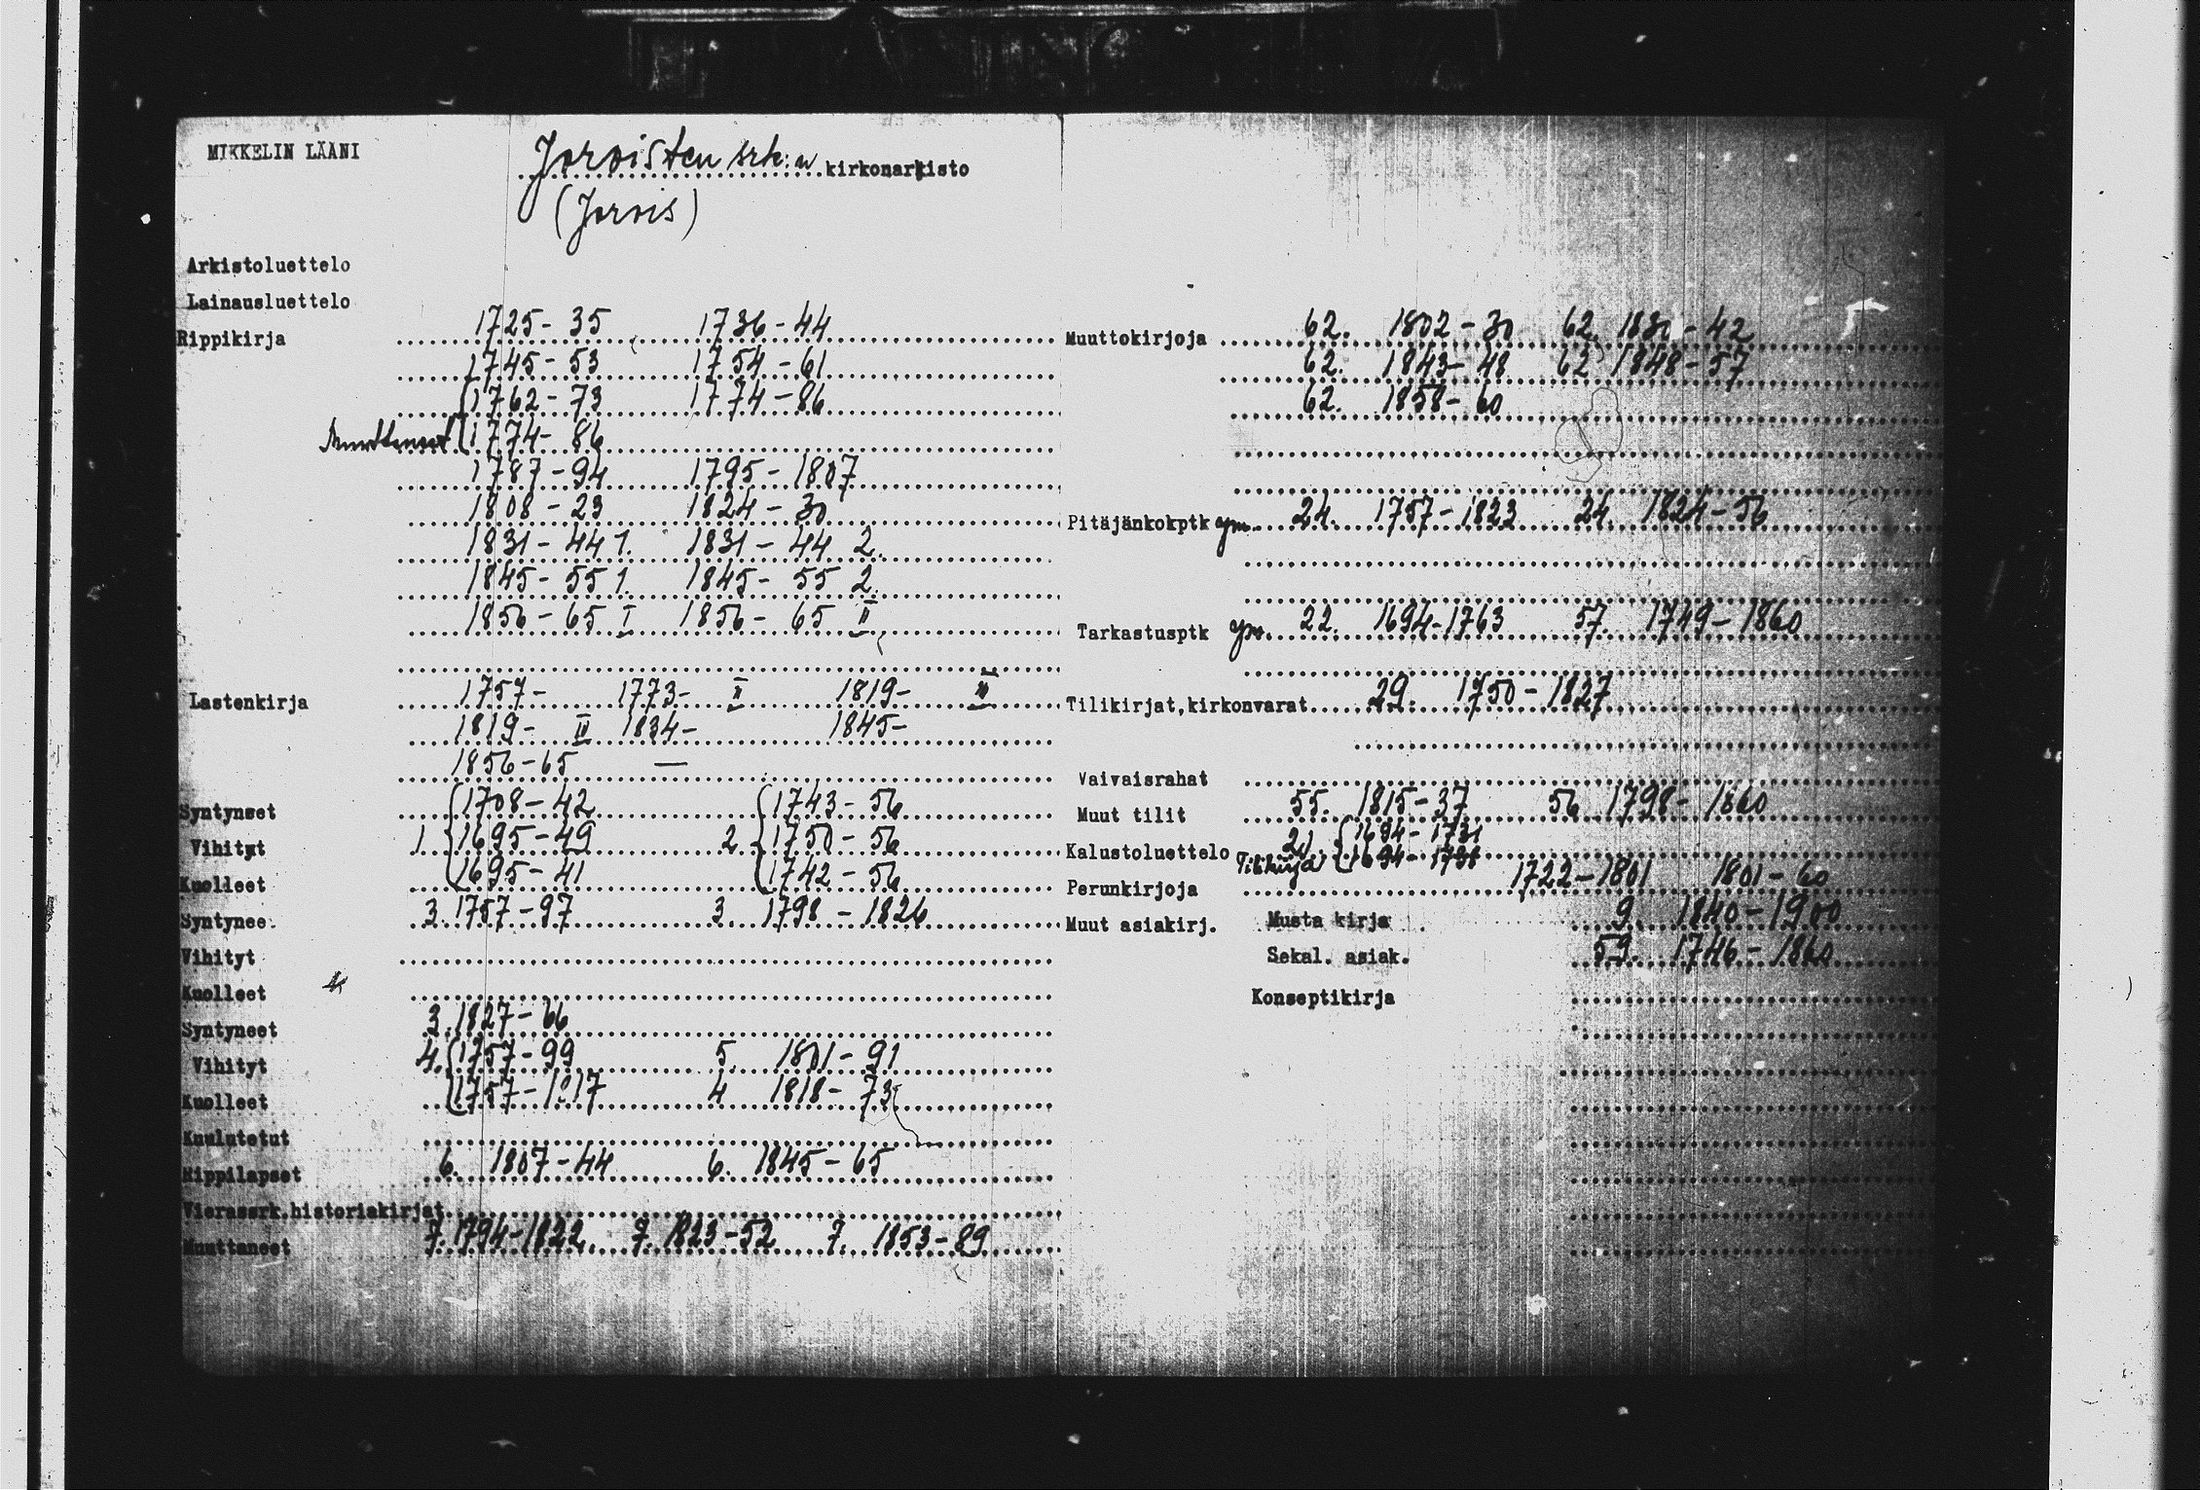 MIKKELIN LÄÄNI
Joroisten srk:n kirkonarkisto
(Jorois)
Arkistoluettelo
Lainausluettelo
Rippikirja 1725-35 1736-44
1745-53 1754-61
1762-73 1774-86
Muuttaneet 1774-86
1787-94 1795-1807
1808-23 1824-30
1831-44 1. 1831-44 2.
1845-55 1. 1845-55 2.
1856-65 I 1856-65 II
Lastenkirja 1757- 1773- II 1819- III
1819- IV 1834- 1845-
1856-65 —
Syntyneet 1708-42 1743-56
Vihityt 1 1695-49 2 1750-56
Kuolleet 1695-41 1742-56
Syntynee. 3. 1757-97 3. 1798-1826
Vihityt
Kuolleet
Syntyneet 3. 1827-66
Vihityt 4. 1757-99 5. 1801-91
Kuolleet 1757-1817 4 1818-73
Kuulutetut
Rippilapset 6. 1807-44 6. 1845-65
Vierassrk.historiakirjat
Muuttaneet 7. 1794-1822 7. 1823-52 7. 1853-89
Muuttokirjoja 62. 1802-30 62 1830-42
62. 1843-48 62 1848-57
62. 1858-60
Pitäjänkokptk ym. 24. 1757-1823 24. 1824-56
Tarkastusptk ym. 22. 1694-1763 57. 1749-1860
Tilikirjat,kirkonvarat 29. 1750-1827
Vaivaisrahat
Muut tilit 55. 1815-37 56 1798-1860
Kalustoluettelo 21. 1694-1731
Tilikirja 1694-1731
Perunkirjoja 1722-1801 1801-60
Muut asiakirj. Musta kirja 9. 1840-1900
Sekal. asiak. 59. 1746-1860
Konseptikirja